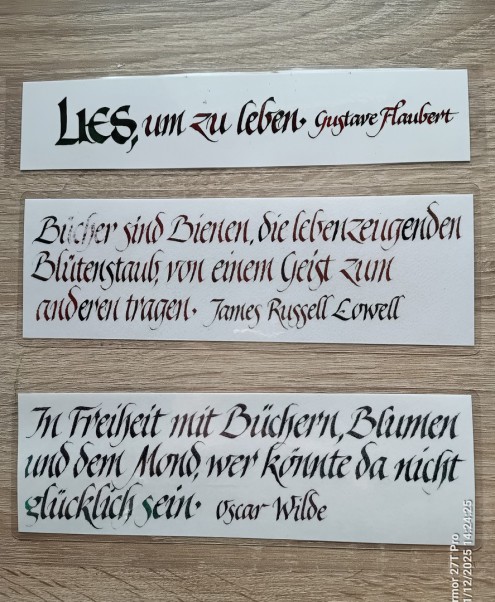 Lies, um zu leben. Gustave Flaubert
Bücher sind Bienen, die lebenzeugenden
Blütenstaub, von einem Geist zum
anderen tragen. James Russell Lowell
In Freiheit mit Büchern, Blumen
und dem Mond, wer könnte da nicht
glücklich sein. Oscar Wilde
rmor 27T Pro
1/12/2025 14:24:25